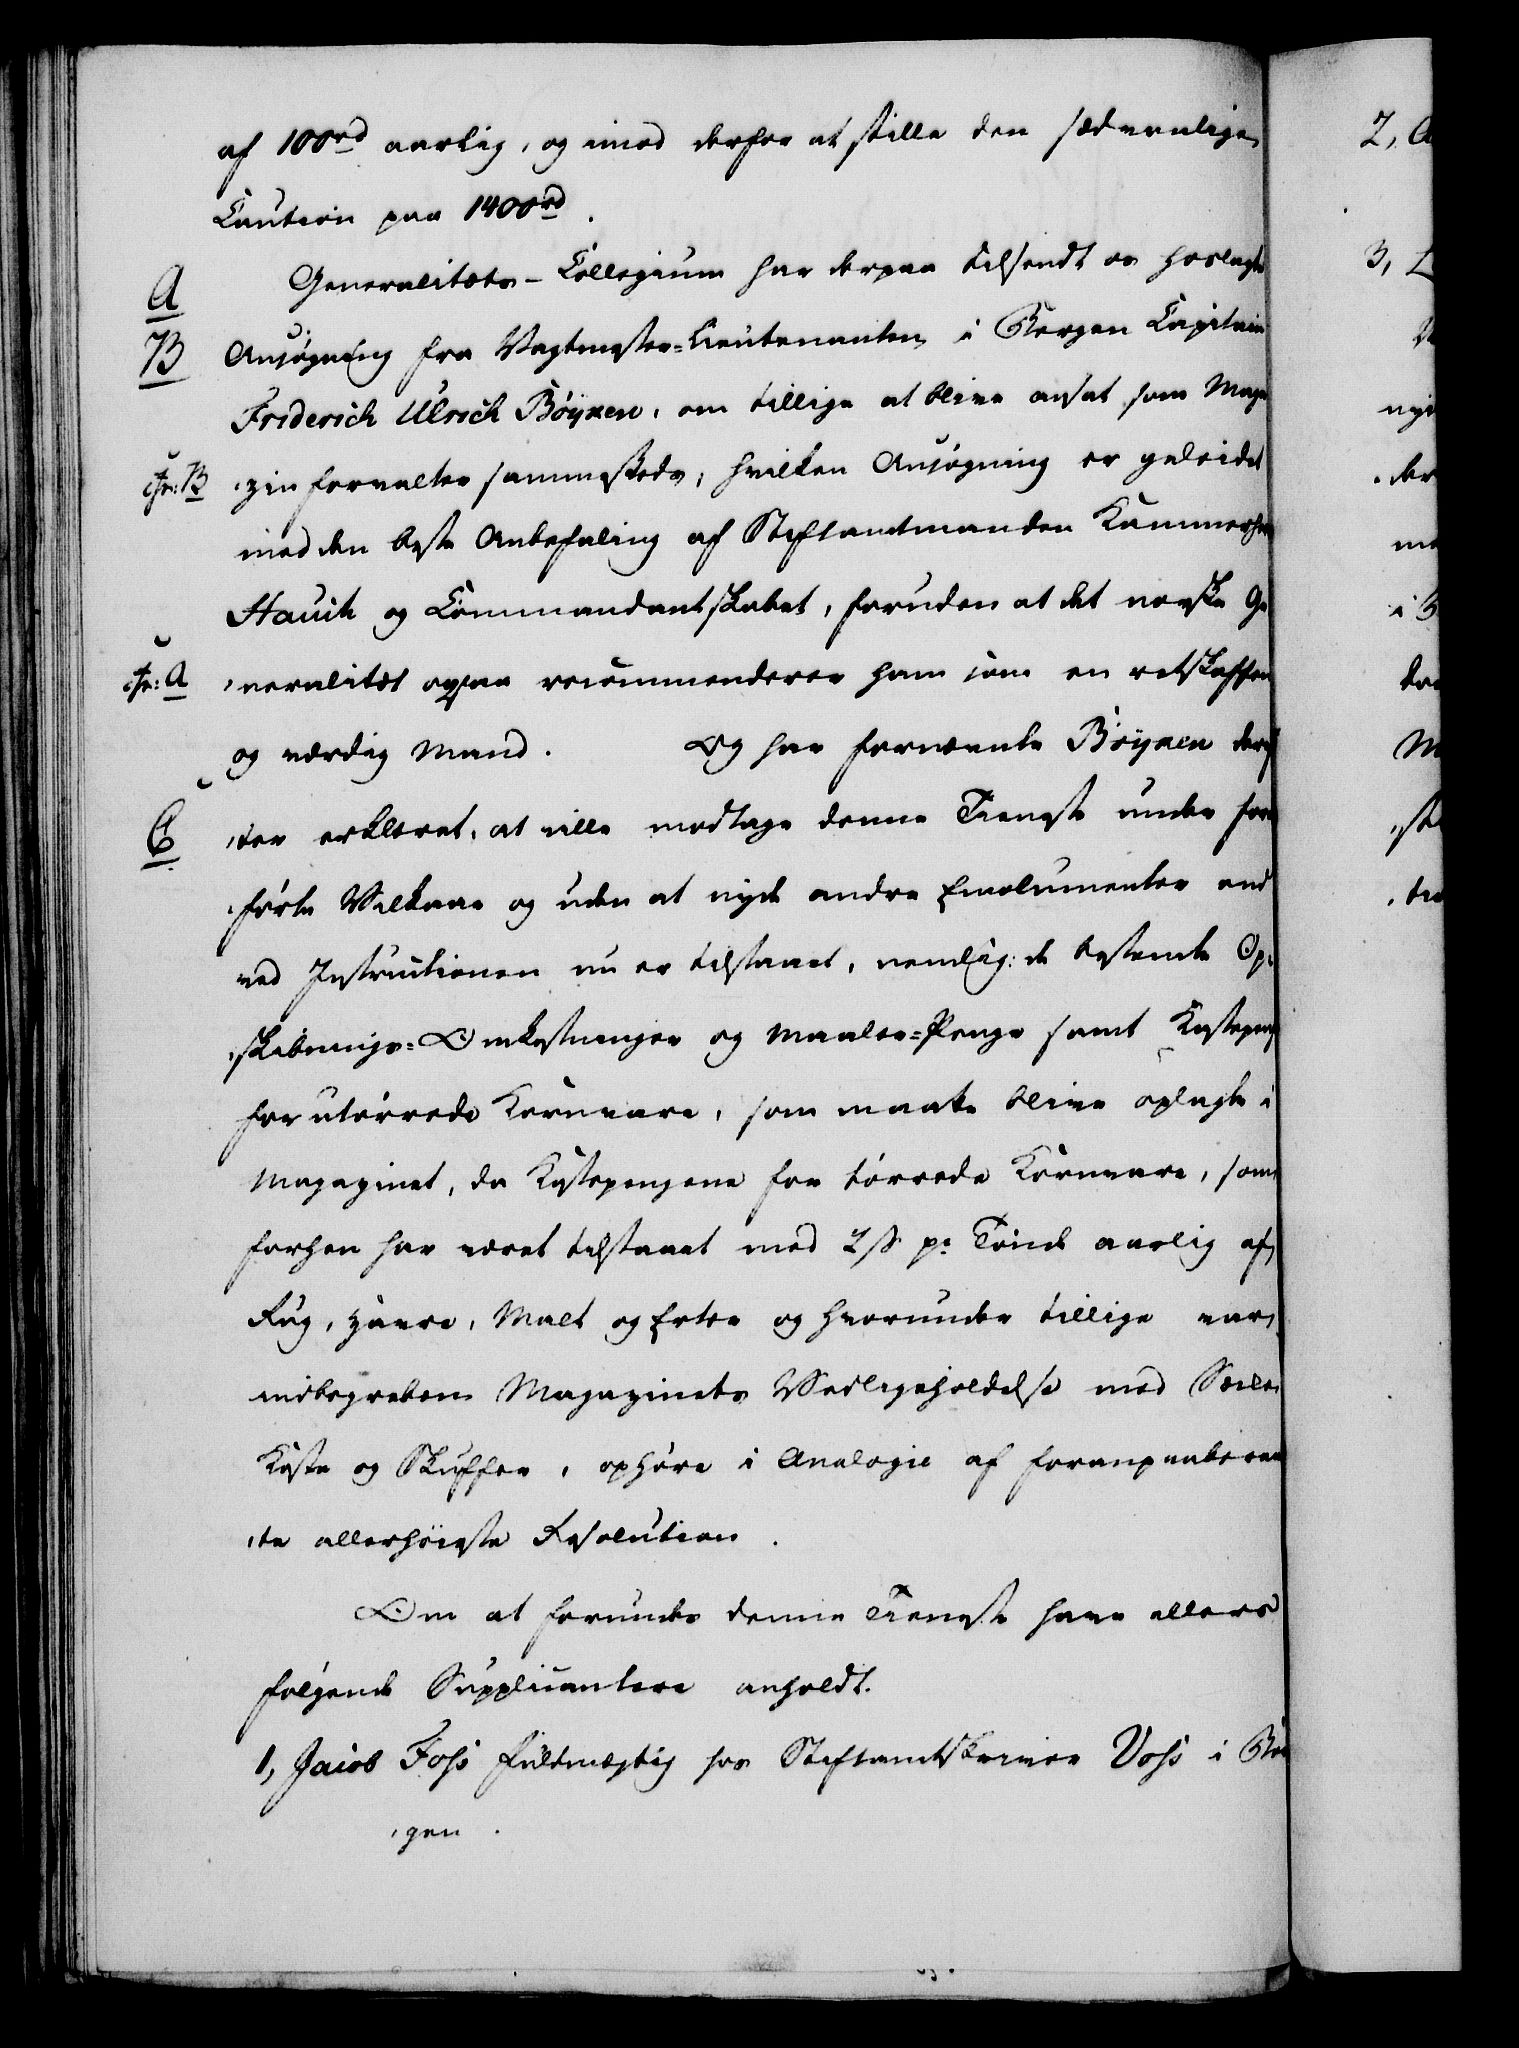 af 100rd aarlig, og imod derfor at stille den sædvanlige
Caution paa 1400rd.
A Generalitets-Collegium har derpaa tilsendt os hoslagte
B Ansøgning fra Vagtmester-Lieutenanten i Bergen Capitain
Friderich Ulrich Böyxen, om tillige at blive ansat som Maga
cfr: B zin forvalter sammesteds, hvilken Ansøgning er geleidet
med den beste Anbefaling af Stiftamtmanden Kammerher
Hauch og Commandantskabet, foruden at det norske Ge
cfr: A neralitet ogsaa recommenderer ham som en retskaffen
og værdig Mand. Og har fornævnte Böyxen deref
C ter erklæret, at ville modtage denne Tieneste under for
førte Vilkaar og uden at nyde andre Emolumenter end
ved Instructionen nu er tilstaaet, nemlig: de bestemte Op
skibnings-Omkostninger og Maaler-Penge samt Kastepenge
for utørrede Kornvare, som maatte blive oplagte i
Magazinet, da Kastepengene for tørrede Kornvare, som
forhen har været tilstaaet med 2 ß pr. Tønde aarlig af
Rug, Havre, Malt og Erter og hvorunder tillige var
indbegreben Magazinets Vedligeholdelse med
Koste og Skuffer, ophøre i Analogie af foranpaaberaab
te allerhøieste Resolution.
Om at forundes denne Tieneste have ellers
følgende Supplicantere anholdt.
1, Jacob Foss Fuldmægtig hos Stiftamtskriver Voss i Ber
gen.
2,
3,